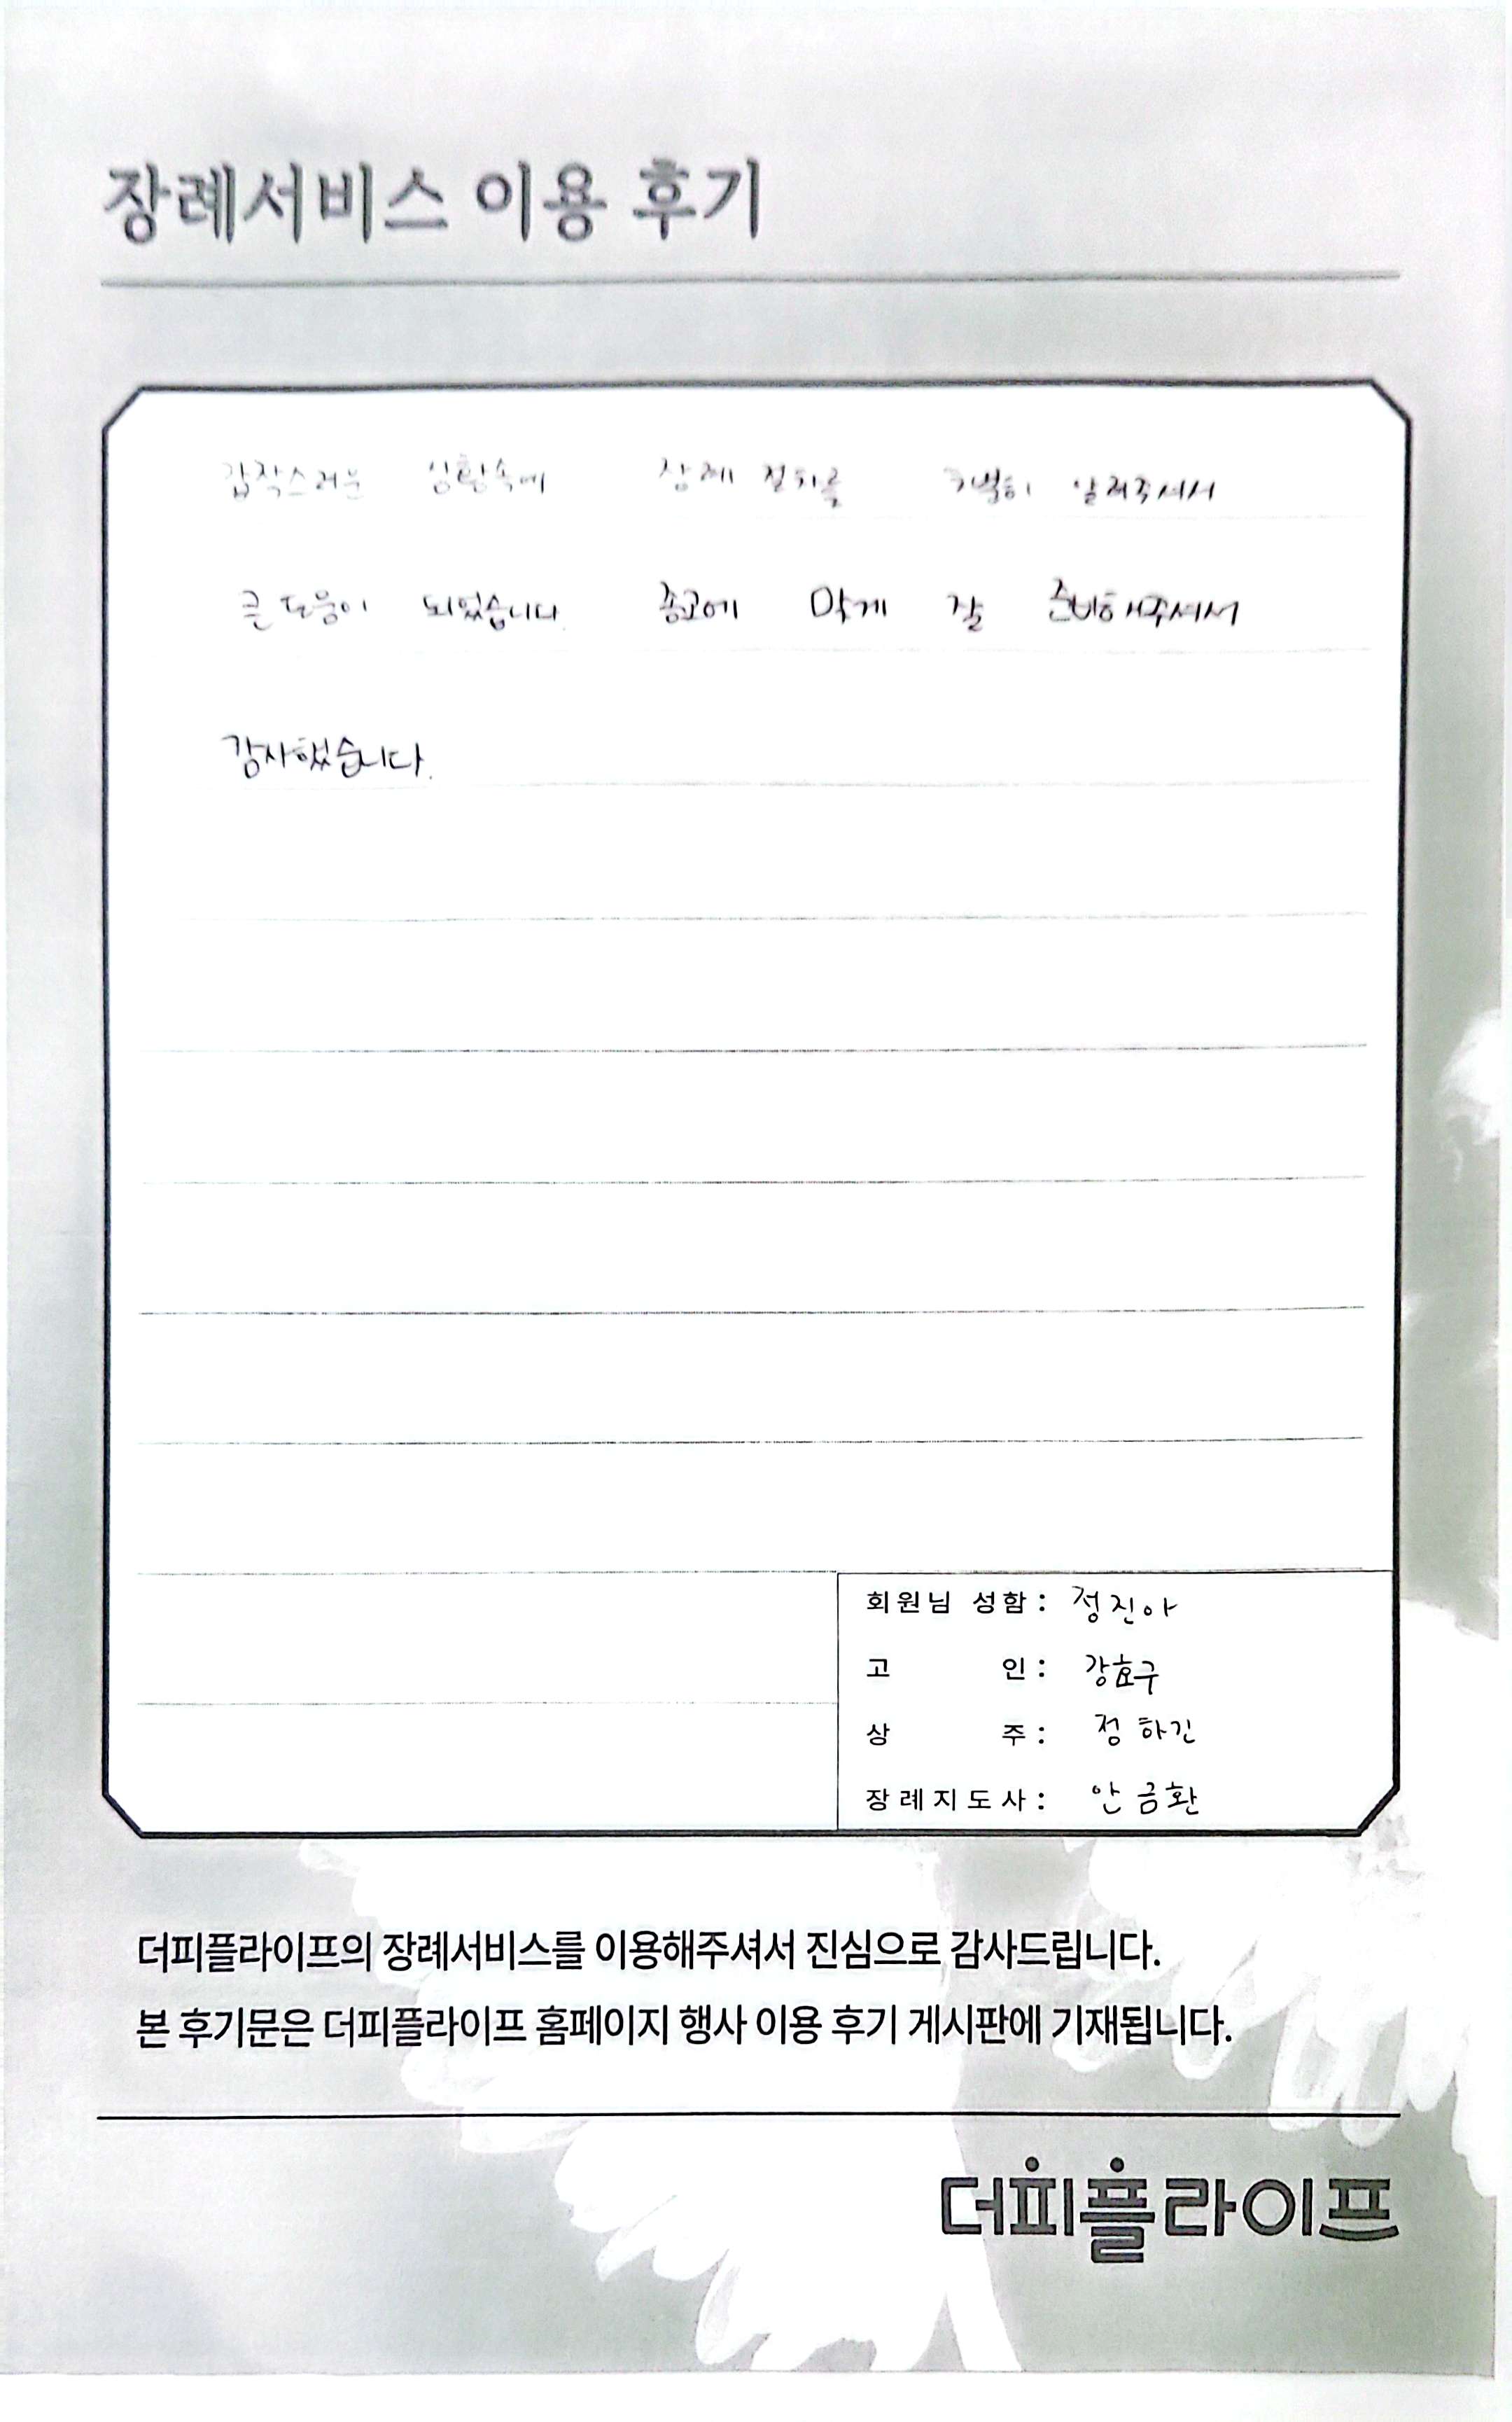 장례서비스 이용 후기
갑작스러운 상황속에 장례 절차를 알려주셔서
큰 도움이 되었습니다. 종교에 맞게 잘 준비해주셔서
감사했습니다.
회원님 성함 : 정진아
고 인 : 강효구
상 주 : 정하긴
장례지도사 : 안금환
더피플라이프의 장례서비스를 이용해주셔서 진심으로 감사드립니다.
본 후기문은 더피플라이프 홈페이지 행사 이용 후기 게시판에 기재됩니다.
더피플라이프